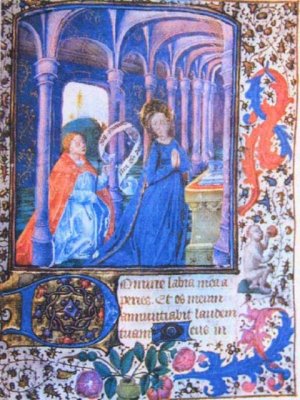 Domine labia mea a
peries. Et os meum
annuntiabit laudem
tuam Deus in